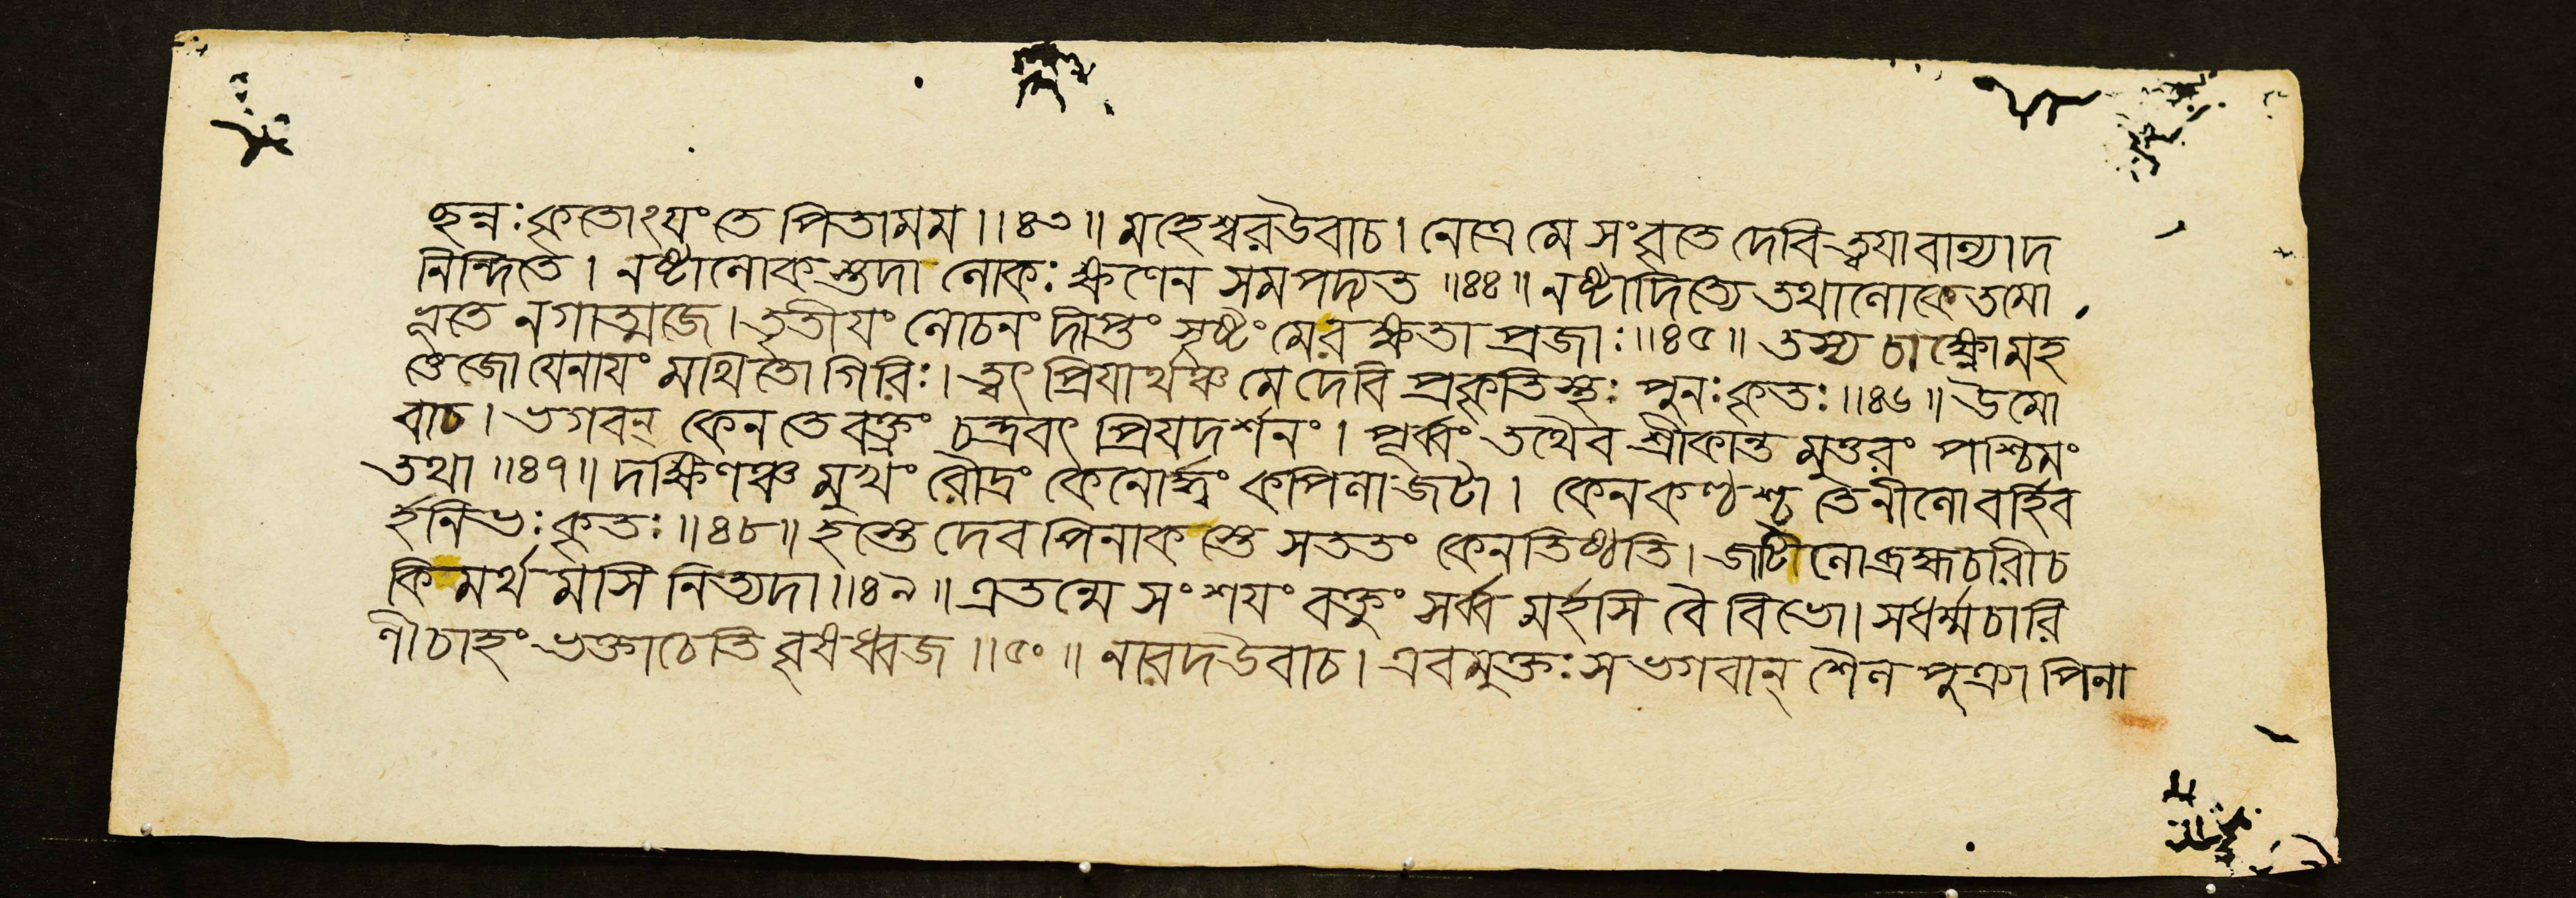 ছন্নঃ কৃতোঽযং তে পিতা মম ॥ ৪৩ ॥ মহেশ্বর উবাচ । নেত্রে মে সংবৃতে দেবি ত্বযা বাল্যাদ
নিন্দিতে । নষ্টালোকস্তদা লোকঃ ক্ষণেন সমপদ্যত ॥ ৪৪ ॥ নষ্টাদিত্যে তথালোকে তমো
ভূতে নগাত্মজে । তৃতীযং লোচনং দীপ্তং সৃষ্টং মে রক্ষতা প্রজাঃ ॥ ৪৫ ॥ তস্য চাক্ষ্ণো মহ
ত্তেজো যেনাযং মথিতো গিরিঃ । ত্বৎ প্রিযার্থঞ্চ মে দেবি প্রকৃতিস্থঃ পুনঃ কৃতঃ ॥ ৪৬ ॥ উমো
বাচ । ভগবন্ কেন তে বক্ত্রং চন্দ্রবৎ প্রিযদর্শনং । পূর্ব্বং তথৈব শ্রীকান্তমুত্তরং পশ্চিমং
তথা ॥ ৪৭ ॥ দক্ষিণঞ্চ মুখং রৌদ্রং কেনোর্দ্ধ্বং কপিলা জটা । কেন কণ্ঠশ্চ তে নীলো বর্হিব
র্হনিভঃ কৃতঃ ॥ ৪৮ ॥ হস্তে দেব পিনাকস্তে সততং কেন তিষ্ঠতি । জটীলো ব্রহ্মচারী চ
কিমর্থমসি নিত্যদা ॥ ৪৯ ॥ এতন্মে সংশযং বক্তুং সর্ব্বমর্হসি বৈ বিভো । সধর্ম্মচারি
ণী চাহং ভক্তা চেতি বৃষধ্বজ ॥ ৫০ ॥ নারদ উবাচ । এবমুক্তঃ স ভগবান্ শৈলপুত্র্যা পিনা